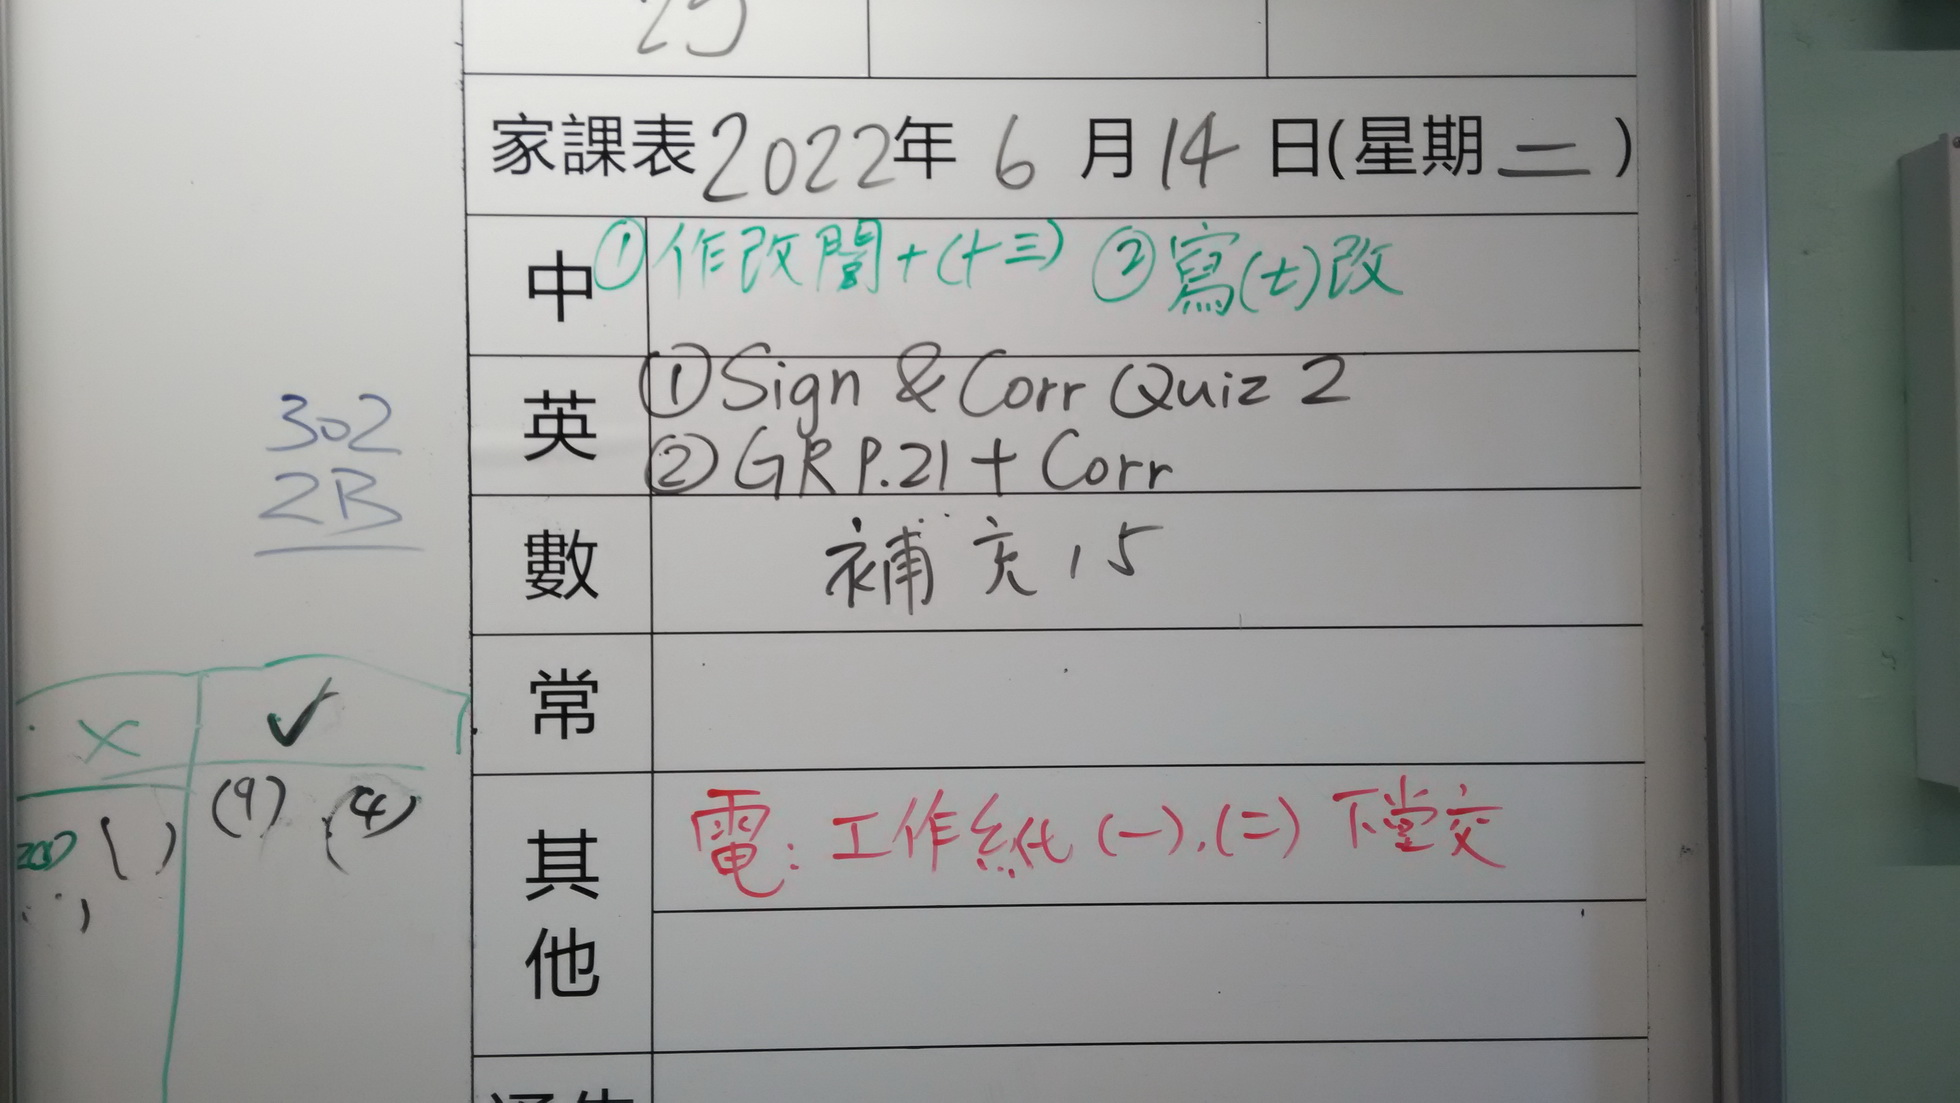 25
家課表2022年6月14日(星期二)
中 ①作改閱+(十三) ②寫(七)改
英 ①Sign & Corr Quiz 2
②GR P.21 + Corr
302
2B
數 補充15
常
X ✓
(9) (4)
其他 電:工作紙(一),(二)下堂交